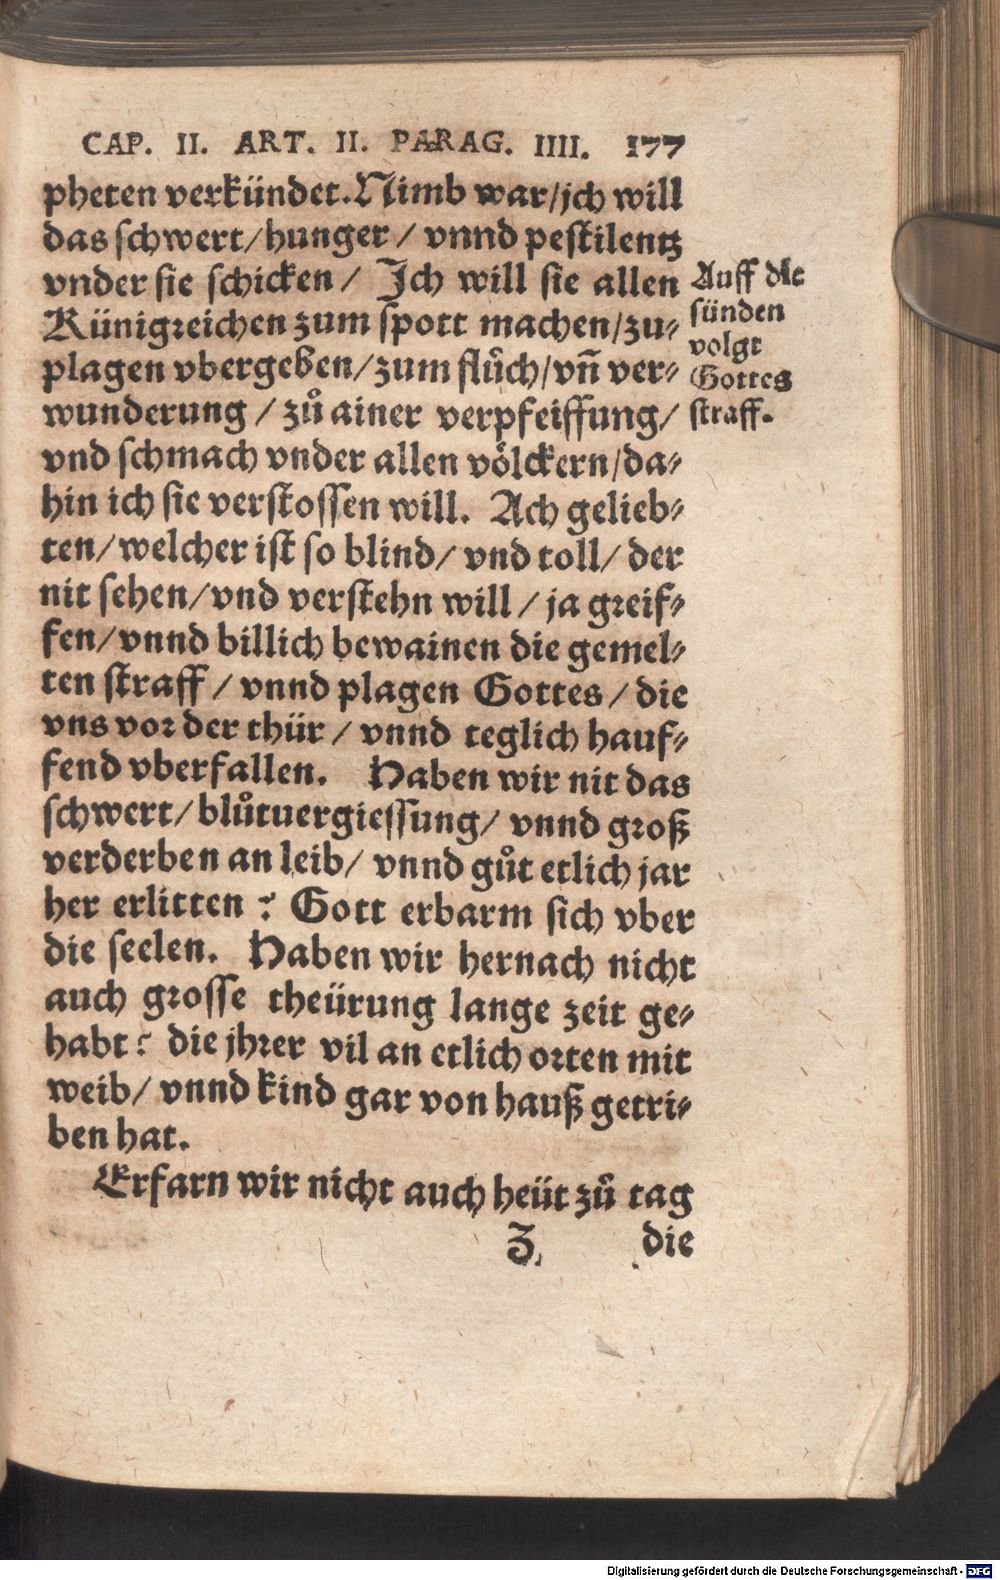 CAP. II. ART. II. PARAG. IIII. 177
pheten verkündet. Nimb war/jch will
das schwert/hunger/ vnnd pestilentz
vnder sie schicken/ Jch will sie allen
Künigreichen zum spott machen/zu⸗
plagen vbergeben/zum flůch/vñ ver⸗
wunderung/zů ainer verpfeiffung/
vnd schmach vnder allen völckern/da⸗
hin ich sie verstossen will. Ach gelieb⸗
ten/welcher ist so blind/ vnd toll/ der
nit sehen/vnd verstehn will/ ja greif⸗
fen/vnnd billich bewainen die gemel⸗
ten straff/ vnnd plagen Gottes/ die
vns vor der thür/ vnnd teglich hauf⸗
fend vberfallen. Haben wir nit das
schwert/blůtuergiessung/ vnnd groß
verderben an leib/ vnnd gůt etlich jar
her erlitten? Gott erbarm sich vber
die seelen. Haben wir hernach nicht
auch grosse theürung lange zeit ge⸗
habt? die jhrer vil an etlich orten mit
weib/ vnnd kind gar von hauß getri⸗
ben hat.
Erfarn wir nicht auch heüt zů tag
Z. die
Auff die
sünden
volgt
Gottes
straff.
Digitalisierung gefördert durch die Deutsche Forschungsgemeinschaft - DFG